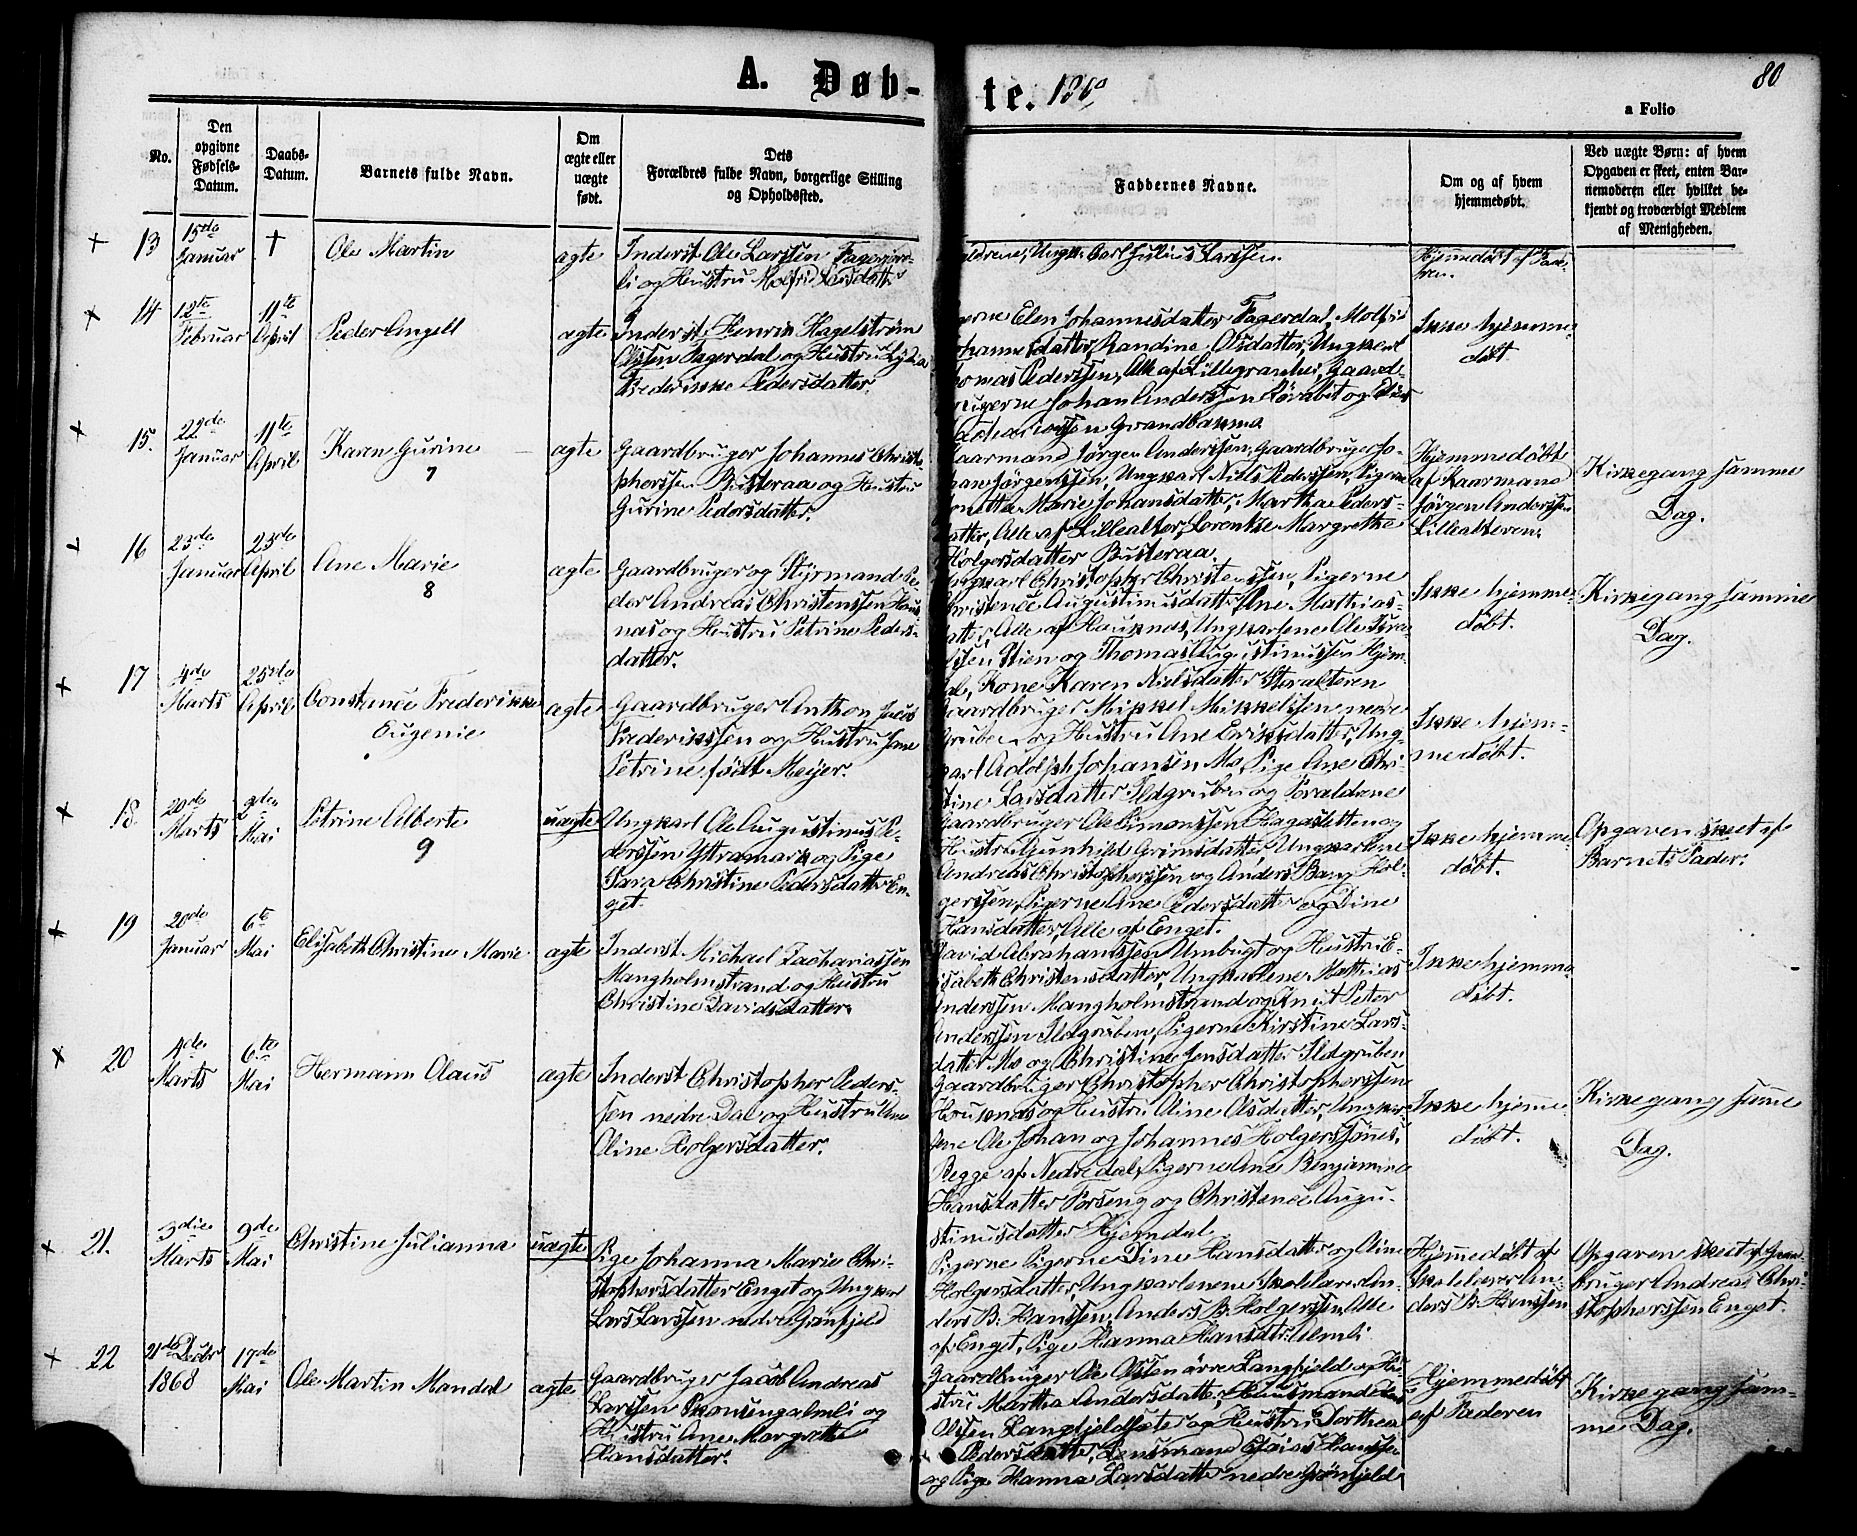 A. Døb-
te. 186
80
a Folio
No.
Den opgivne Fødsels-Datum.
Daabs-Datum.
Barnets fulde Navn.
Om ægte eller uægte født.
Dets Forældres fulde Navn, borgerlige Stilling og Opholdssted.
Faddernes Navne.
Om og af hvem hjemmedøbt.
Ved uægte Børn: af hvem Opgaven er skeet, enten Barnemoderen eller hvilket bekjendt og troværdigt Medlem af Menigheden.
13
15de Januar
†
Ole Martin
ægte
Inderst Ole Larssen
li og Hustru Molfrid Larsdatter
Ungk. Carl Julius Larssen.
Hjemmedøbt af
14
12te Februar
11te April
Peder Angell
ægte
Inderst Henrik Hagelstrøm
Olssen Fagerdal og Hustru
Frederikke Pedersdatter.
Elen Johannesdatter Fagerdal, Molfri
datter, Randine Olsdatter, Ungkarl
Pederssen, Alle af
Johan Anderssen
Ikke hjemme-
døbt
15.
22de Januar
11te April
Karen Gurine
7
ægte
Gaardbruger Johannes Christo-
pherssen Busteraa og Hustru
Gurine Pedersdatter.
Jørgen Anderssen, Gaardbruger Jo-
Jørgenssen, Ungkarl Niels Pederssen, Pigerne
Marie Johansdatter, Martha Peders-
Alle af Lillealter, Lorentze Margrethe
Holgersdatter Busteraa.
Hjemmedøbt
af Kaarmand
Jørgen Anderssen
Lillealteren.
Kirkegang samme
Dag.
16
23de Januar
23de April
Ane Marie
8
ægte
Gaardbruger og Styrmand Pe-
der Andreas Christenssen Hauk-
nas og Hustru Petrine Peders-
datter.
Christopher Christenssen, Pigerne
Augustinusdatter, Ane Mathias-
Alle af Hauknas, Ungkarlene Ole
og Thomas Augustinussen Hjem-
Kone Karen Nielsdatter Storalteren
Ikke hjemme-
døbt.
Kirkegang samme
Dag.
17
4de Marts
25de April
Constance Frederikke
Eugenie
ægte
Gaardbruger Anthon Jacob
Frederikssen og Hustru Jane
Petrine født Meyer.
Gaardbruger Mikkel Mikkelssen nedre
og Hustru Ane Eriksdatter, Ung-
karl Adolph Johansen Mo, Pige Ane Chri-
stine Larsdatter Ildgruben og Forældrene
Ikke hjem-
medøbt.
18
20de Marts
2den Mai
Petrine Alberte
9
uægte
Ungkarl Ole Augustinus Pe-
derssen Yttramark og Pige
Christine Pedersdatter En-
get.
Gaardbruger Ole Simonssen Hagasletten og
Hustru Gunhild Grimsdatter, Ungkarlene
Andreas Christopherssen og Anders Bang Hol-
gerssen, Pigerne Ane Pedersdatter og Dine
Hansdatter, Alle af Enget.
Ikke hjemme-
døbt.
Opgaven skeet af
Barnets Fader.
19
20de Januar
6te Mai
Elisabeth Christine Marie
ægte
Inderst Michael Zachariassen
Mangholmstrand og Hustru
Christine Davidsdatter.
David Abrahamssen Umbugt og Hustru E-
lisabeth Christensdatter, Ungkarlene Mathias
Anderssen Mangholmstrand og Knut Peter
Anderssen Ildgruben, Pigerne Kirstine Lars-
datter Mo og Christine Jensdatter Ildgruben
Ikke hjemme-
døbt.
20
4de Marts
6te Mai
Hermann Olaus
ægte
Inderst Christopher Peders-
sen nedre Dal og Hustru Ane
Oline Holgersdatter.
Gaardbruger Christopher Christopherssen
Hauknas og Hustru Oline Olsdatter, Ungkar-
lene Ole Johan og Johannes Holgerssønner,
Begge af Nedredal, Pigerne Ane Benjamine
Hansdatter Forseng og Christence Augu-
stinusdatter Hjemdal.
Ikke hjemme
døbt.
Kirkegang samme
Dag.
21.
3die Marts
9de Mai
Christine Julianna
uægte
Pige Johanna Marie Chri-
stophersdatter Enget og Ungkar
Lars Larssen nedre Grønfjeld
Pigerne Pigerne Dine Hansdatter og Oline
Holgersdatter, Ungkarlene Skolelærer An-
ders B. Hanssen, Anders B. Holgerssen, Alle
af Enget, Pige Hanna Hansdtr. Almli
Hjemmedøbt af
Skolelærer An-
ders B. Hanssen
Opgaven skeet af Gaard-
bruger Andreas Chri-
stopherssen Enget.
22
21de Decbr 1868
17de Mai
Ole Martin Mandal
ægte
Gaardbruger Jacob Andreas
Larssen Skonsengalmli og
Hustru Ane Margrethe
Hansdatter.
Gaardbruger Ole Olssen øvre Langfjeld og Hu-
stru Martha Andersdatter, Huusmand
Olssen Langfjeldsæter og Hustru Dorthea
Pedersdatter, Lensmand Esaias Hanssen
og Pige Hanna Larsdatter nedre Grønfjeld
Hjemmedøbt
af Faderen
Kirkegang sam-
me Dag.